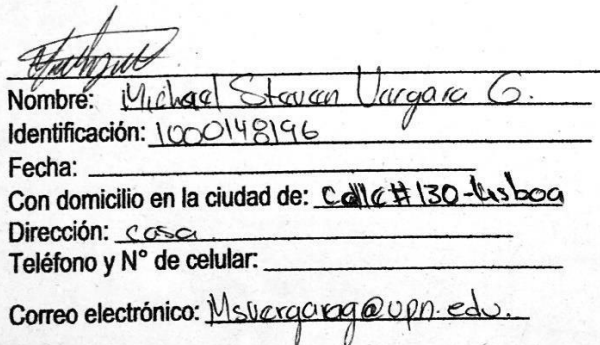 Nombre: Michael Steven Vergara G.
Identificación: 1000148196
Fecha:
Con domicilio en la ciudad de: Calle #130-Lisboa
Dirección: casa
Teléfono y N° de celular:
Correo electrónico: Msvergarag@upn.edu.